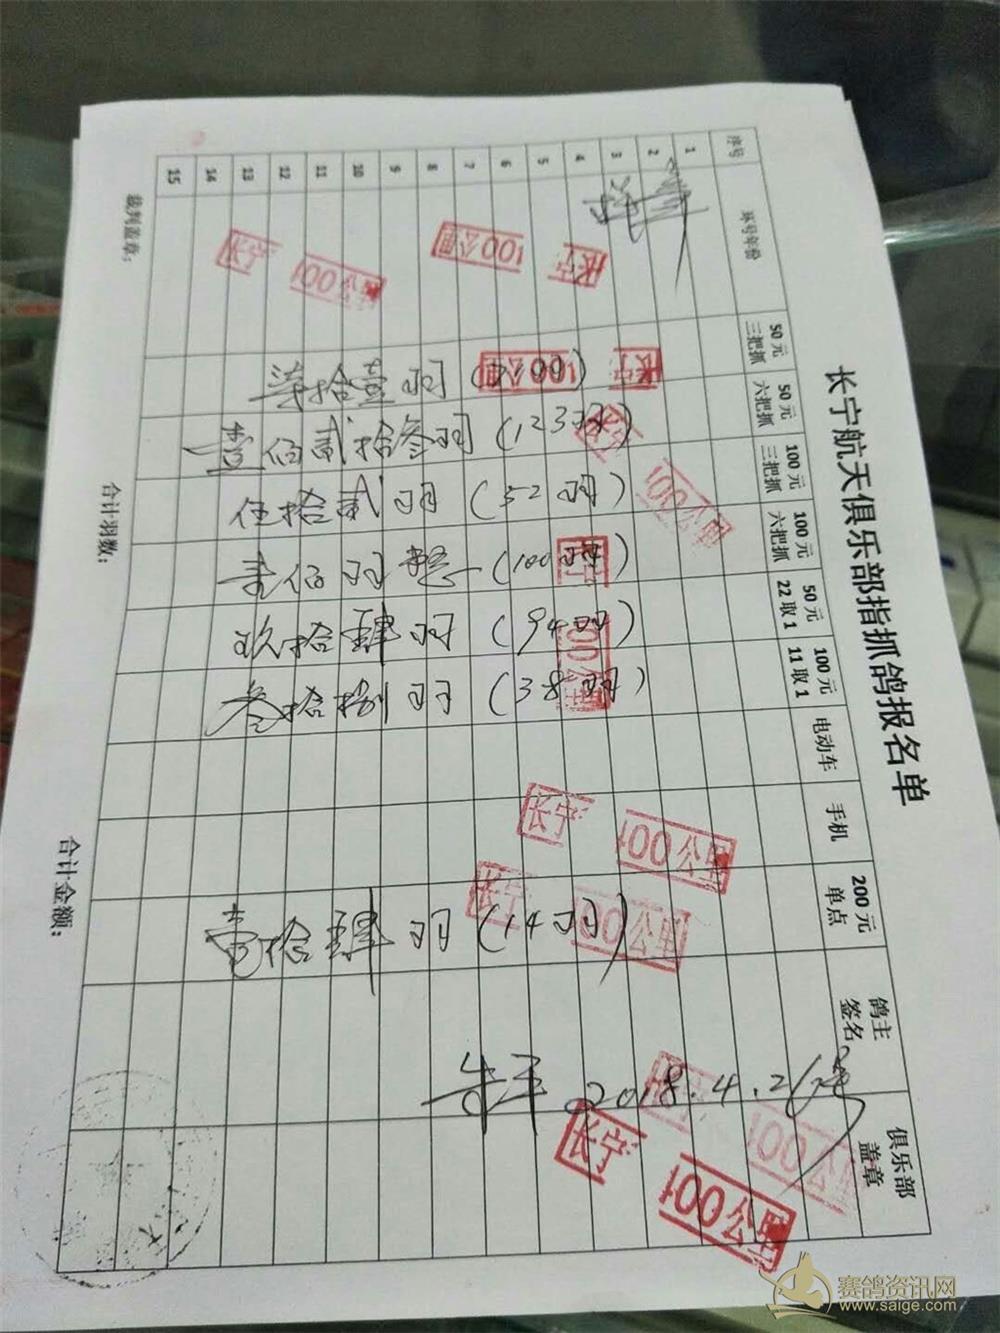 长宁航天俱乐部指抓鸽报名单
序号 环号年份 50元三把抓 50元六把抓 100元三把抓 100元六把抓 50元22取1 100元11取1 电动车 手机 200元单点 鸽主签名 俱乐部盖章
1
2
3
4
5
6
7
8
9
10
11
12
13
14
15
柒拾壹羽
壹佰贰拾叁羽(123羽)
伍拾贰羽(52羽)
壹佰羽整(100羽)
玖拾肆羽(94羽)
叁拾捌羽(38羽)
壹拾肆羽(14羽)
2018.4.2
长宁 100公里
长宁 100公里
长宁 100公里
长宁 100公里
长宁 100公里
长宁 100公里
长宁 100公里
长宁 100公里
裁判盖章: 合计羽数: 合计金额:
赛鸽资讯网
www.saige.com